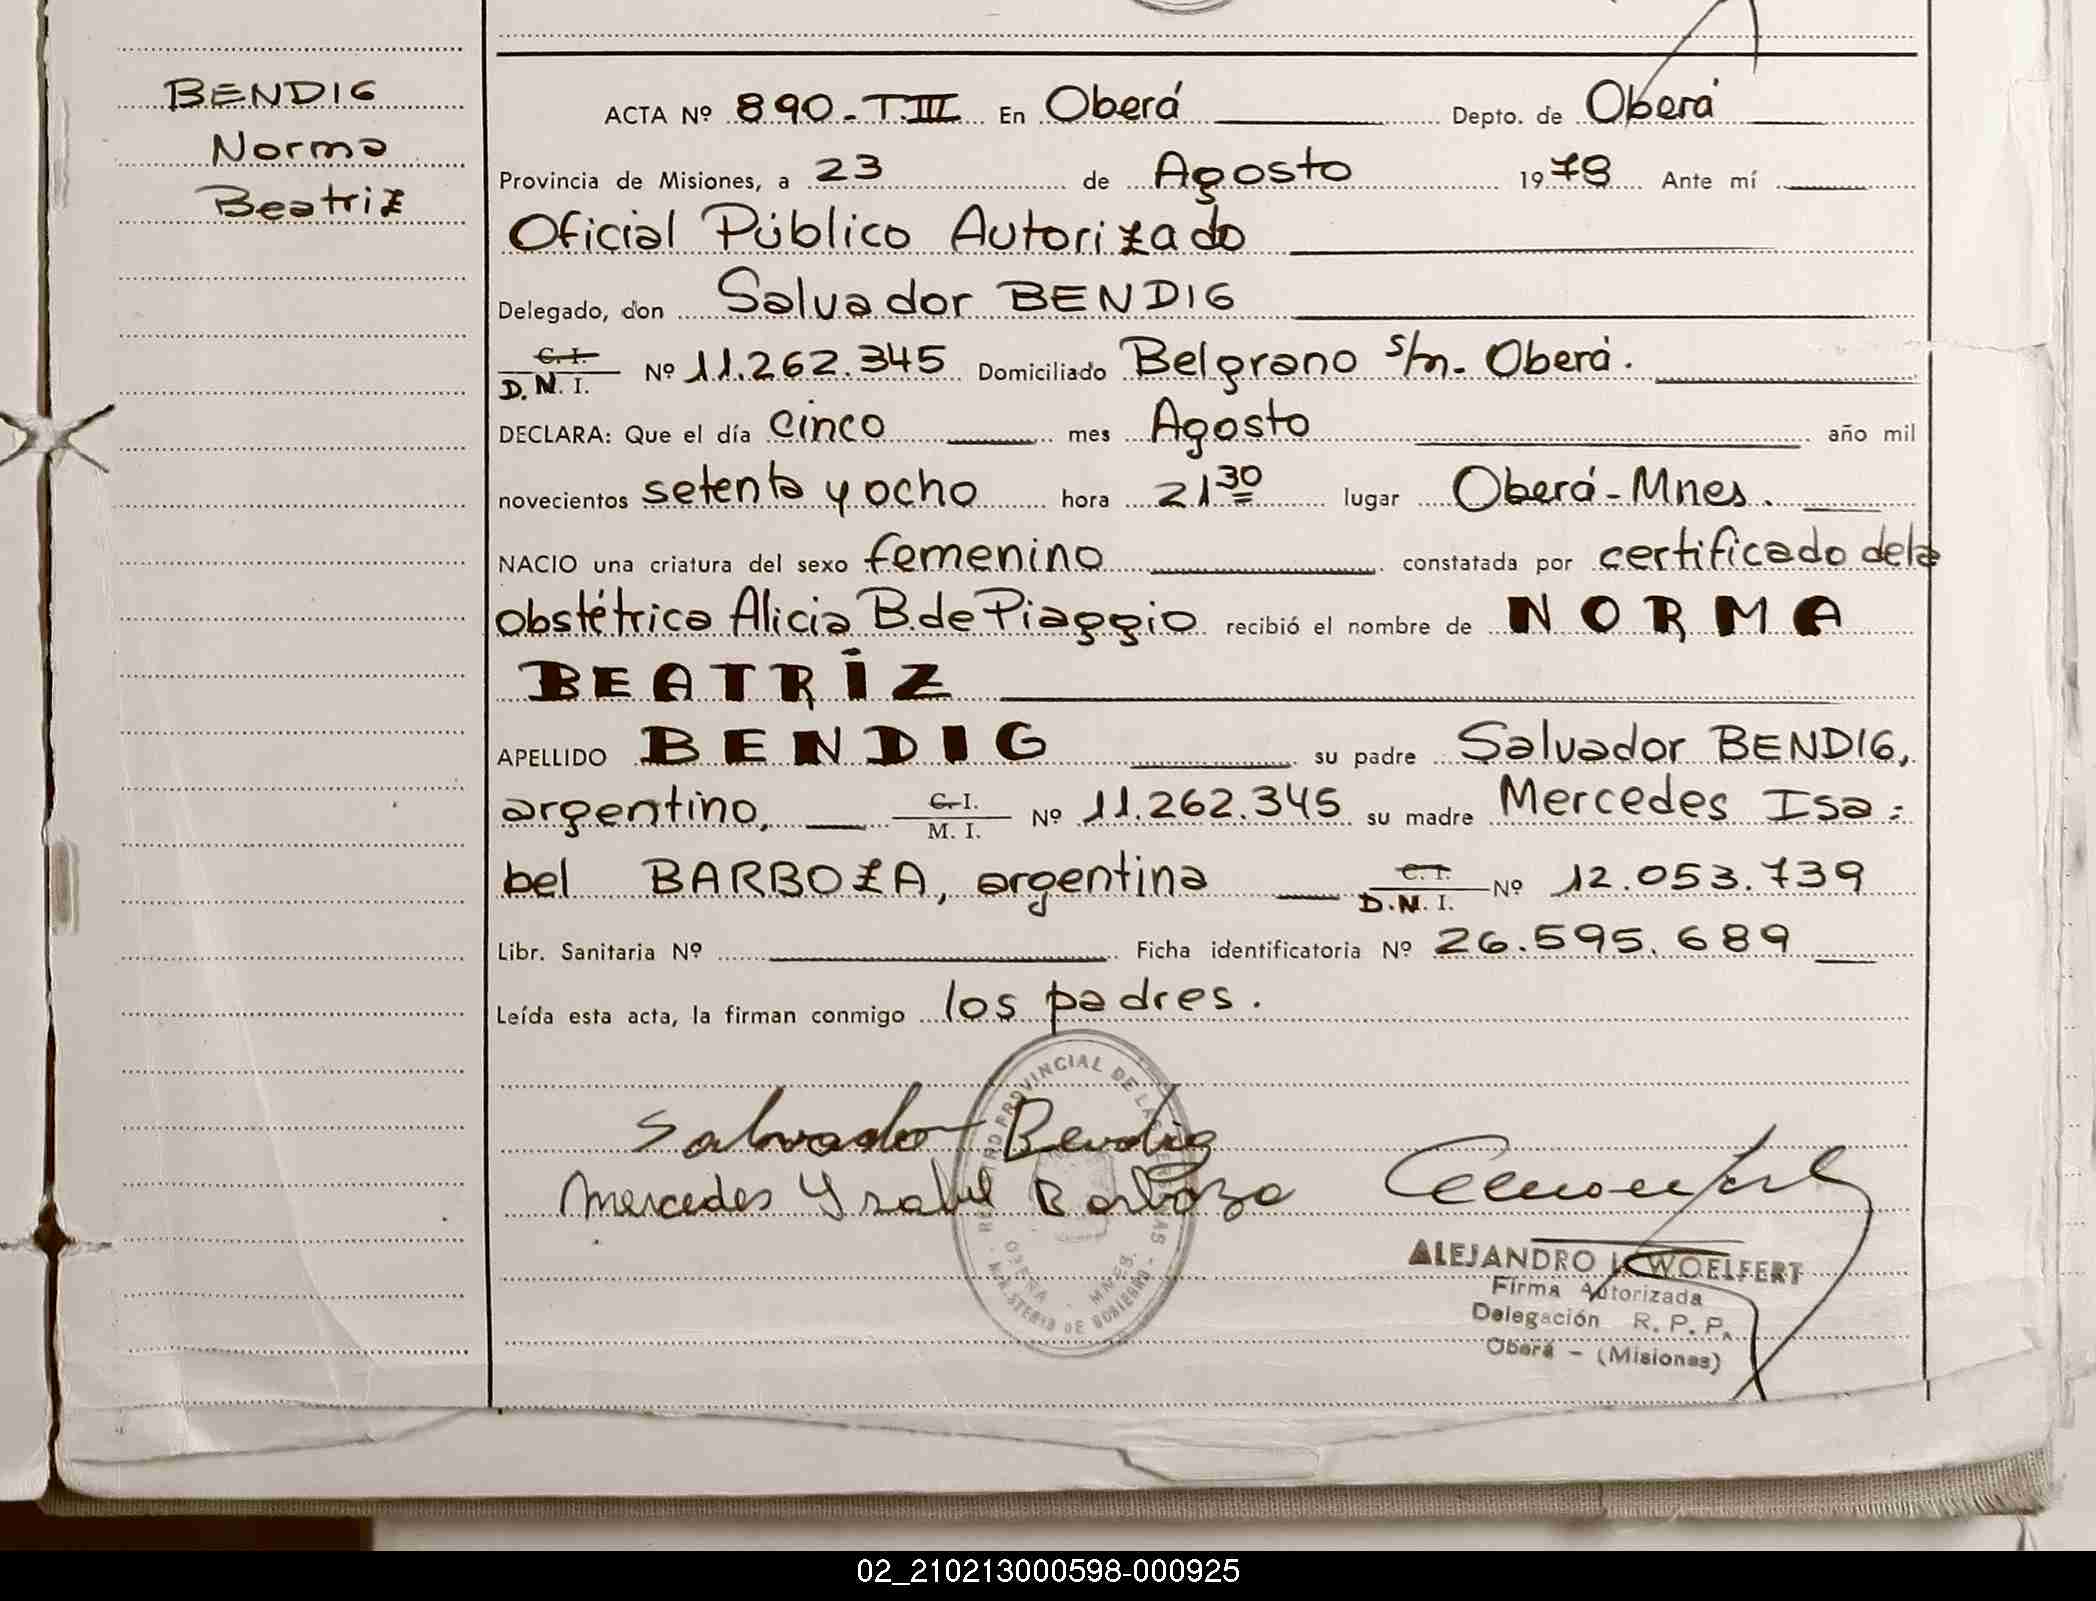 BENDIG
Norma
Beatriz
ACTA Nº 890-T.III En Oberá Depto. de Oberá
Provincia de Misiones, a 23 de Agosto 1978 Ante mí
Oficial Público Autorizado
Delegado, don Salvador BENDIG
C. I.
D. N. I. Nº 11.262.345 Domiciliado Belgrano s/n. Oberá.
DECLARA: Que el día cinco mes Agosto año mil
novecientos setenta y ocho hora 21 30 lugar Oberá-Mnes.
NACIO una criatura del sexo femenino constatada por certificado de la
obstétrica Alicia B. de Piaggio recibió el nombre de NORMA
BEATRIZ
APELLIDO BENDIG su padre Salvador BENDIG,
argentino, C. I. M. I. Nº 11.262.345 su madre Mercedes Isa=
bel BARBOZA, argentina C. I. D. N. I. Nº 12.053.739
Libr. Sanitaria Nº Ficha identificatoria Nº 26.595.689
Leída esta acta, la firman conmigo los padres.
REGISTRO PROVINCIAL DE LAS PERSONAS
MINISTERIO DE GOBIERNO
MNES.
Salvador Bendig
Mercedes Ysabel Barboza
ALEJANDRO WOELFERT
Firma Autorizada
Delegación R. P. P.
Oberá - (Misiones)
02_210213000598-000925